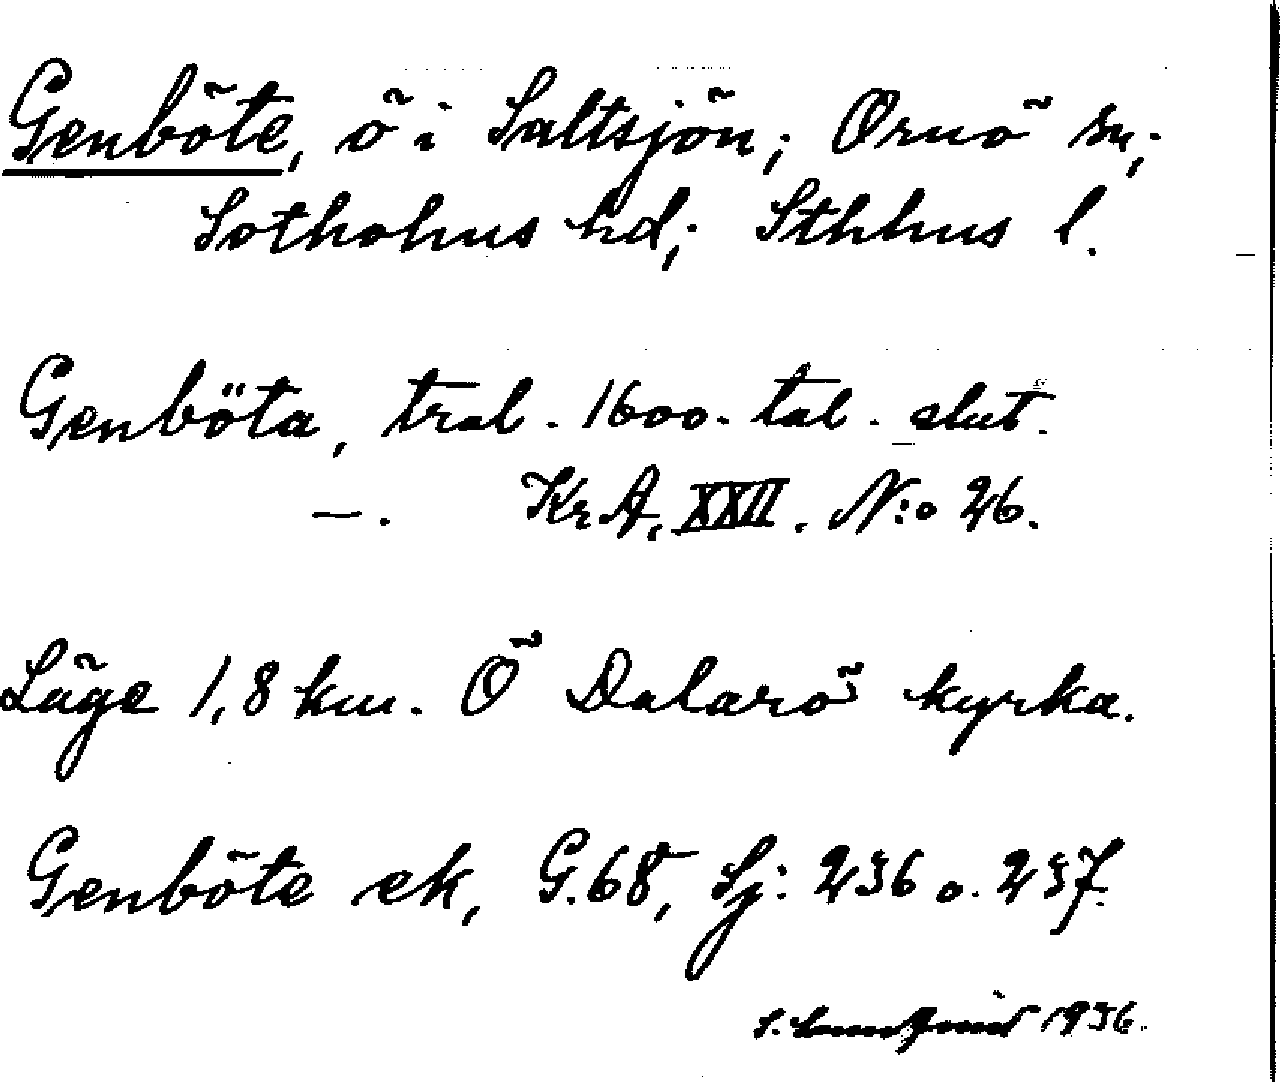 Genböte, ö i Saltsjön; Ornö sn;
Sotholms hd; Sthlms l.
Genböta, tral. 1600-tal. slut.
—. KrA, XXII. N:o 26.
Läge 1,8 km. Ö Dalarö kyrka.
Genböte ek, G.68, Sj: 236 o. 237.
S. 1936.